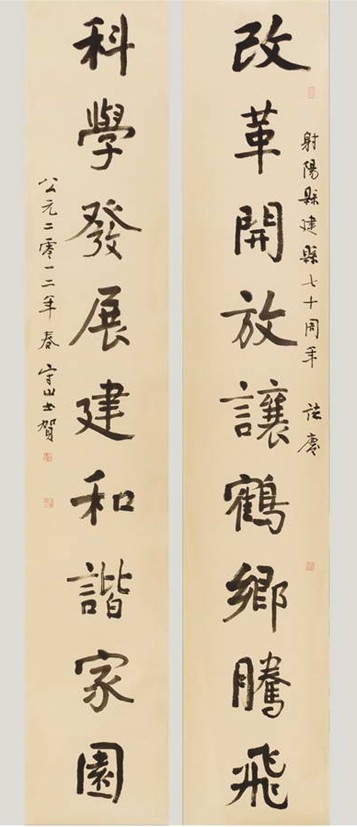 射陽縣建縣七十周年 誌慶
改革開放讓鶴鄉騰飛
科學發展建和諧家園
公元二零一二年春 守山書賀